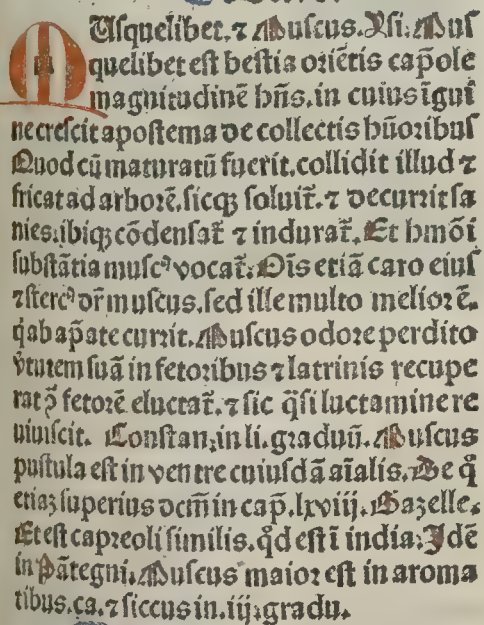 MUſquelibet. ⁊ Muſcus. Yſi. Muſ
quelibet eſt beſtia oriētis cap̄ole
magnitudinē hn̄s. in cuius īgui
ne creſcit apoſtema de collectis hūoribuſ
Quod cū maturatū fuerit. collidit illud ⁊
fricat ad arborē. ſicqꝫ ſoluit̄. ⁊ decurrit ſa
nies. ibiqꝫ cōdenſat̄ ⁊ indurat̄. Et hm̄õi
ſubſtātia muſcꝰ vocat̄. Oīs etiā caro eiuſ
⁊ſtercꝰ dr̄ muſcus. ſed ille multo melior ē.
q̇ ab ap̄ate currit. Muſcus odore perdito
v̄tutem ſuā in fetoribus ⁊ latrinis recupe
rat ꝙ̄ fetorē eluctat̄. ⁊ ſic q̄ſi luctamine re
uiuiſcit. Conſtan. in li. graduū. Muſcus
puſtula eſt in ventre cuiuſdā aīalis. De q̊
etiaꝫ ſuperius dcm̄ in cap̄. lxviij. Gazelle.
Et eſt capreoli ſimilis. qd̓ eſt ī india. Idē
in Pātegni. Muſcus maior eſt in aroma
tibus. ca. ⁊ ſiccus in. iij. gradu.